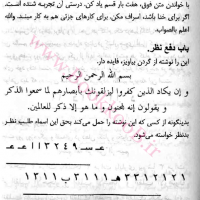 با خواندن متن فوق، هفت بار قسم یاد کن. درستی آن تجربه شده است.
اگر برای خدا باشد، اسراف مکن. برای کارهای جزئی هم به کار مبند. والله
اعلم بالصواب.
باب دفع نظر.
این را نوشته از گردن بیاویز، فایده دار.
بسم الله الرحمن الرحیم
و إن یکاد الذین کفروا لیزلقونک بأبصارهم لما سمعوا الذکر
و یقولون إنه لمجنون و ما هو إلا ذکر للعالمین.
بدینگونه از کسی که این نوشته را حمل می‌کند بحق این اسماء طلب نظـر
بدنظر خواسته می‌شود.